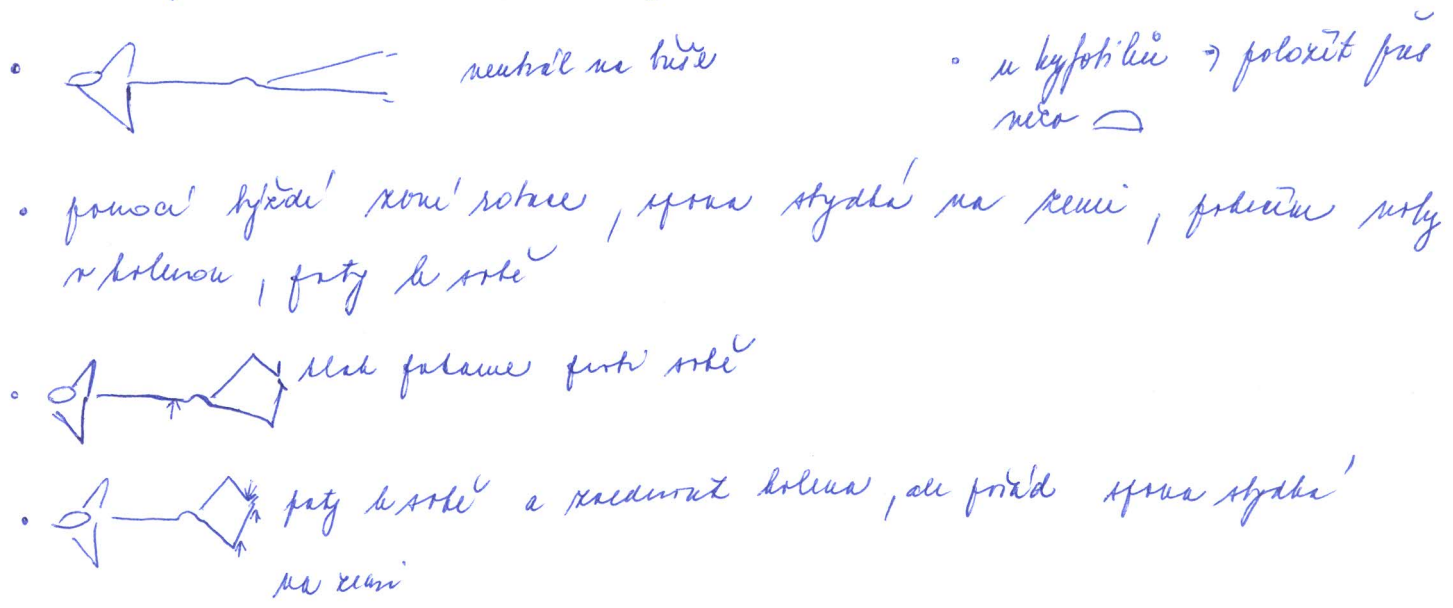 • neutrál na břiše
• u kyfotiků → položit pás
něco
• pomocí hýždí zevní rotace, spona stydká na zemi, pokrčím nohy
v kolenou, paty k sobě
• tlak patame proti sobě
• paty k sobě a zvednout kolena, ale pořád spona stydká
na zemi